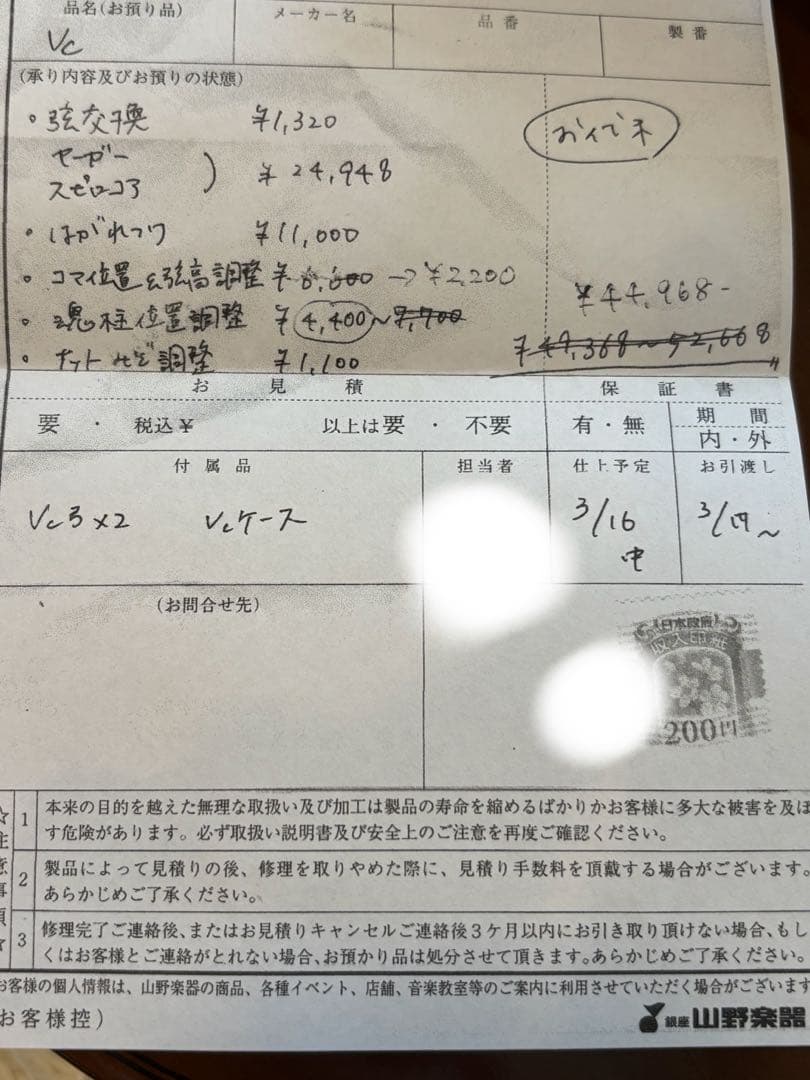 品名(お預り品)
メーカー名
品番
製番
Vc
(承り内容及びお預りの状態)
・弦交換 ¥1,320
ヤーガー
スピロコア ) ¥24,948
・はがれつけ ¥11,000
・コマ位置&弦高調整 ¥6,600→¥2,200
・魂柱位置調整 ¥4,400~¥7,700
・ナットみぞ調整 ¥1,100
¥44,968-
¥49,368~52,668
お見積
保証書
要・税込¥ 以上は要・不要
有・無
期間
内・外
付属品
担当者
仕上予定
お引渡し
Vc弓×2 Vcケース
3/16
中
3/17~
(お問合せ先)
日本政府
収入印紙
200円
☆注意事項☆
1 本来の目的を越えた無理な取扱い及び加工は製品の寿命を縮めるばかりかお客様に多大な被害を及ぼ
す危険があります。必ず取扱い説明書及び安全上のご注意を再度ご確認ください。
2 製品によって見積りの後、修理を取りやめた際に、見積り手数料を頂戴する場合がございます。
あらかじめご了承ください。
3 修理完了ご連絡後、またはお見積りキャンセルご連絡後3ケ月以内にお引き取り頂けない場合、もし
くはお客様とご連絡がとれない場合、お預かり品は処分させて頂きます。あらかじめご了承ください。
お客様の個人情報は、山野楽器の商品、各種イベント、店舗、音楽教室等のご案内に利用させていただく場合がございます
お客様控)
銀座 山野楽器